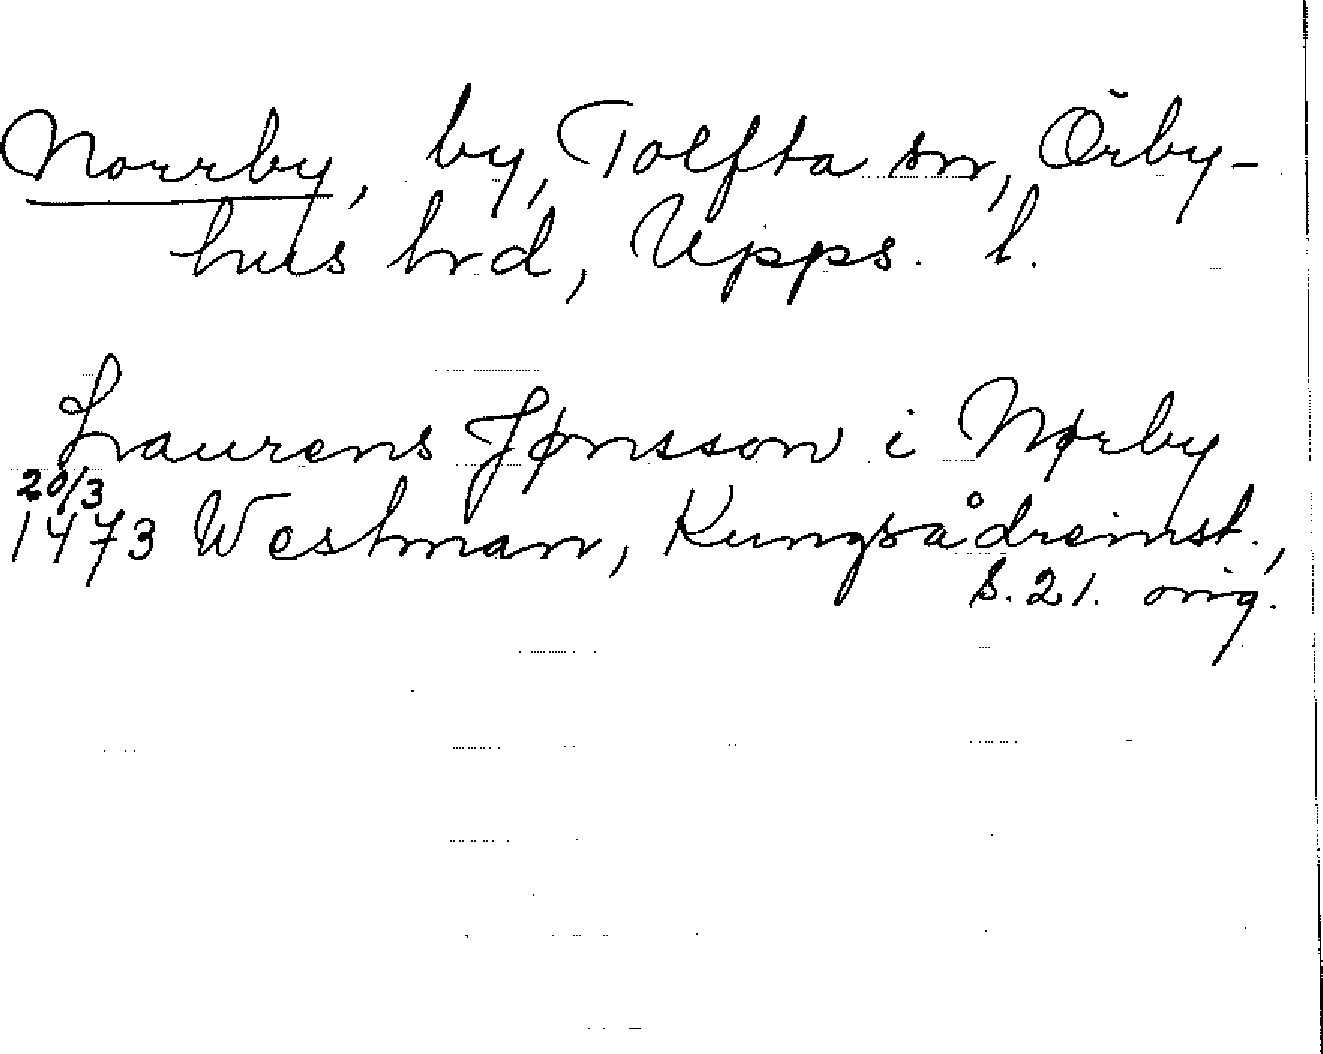 Norrby, by, Tolfta sn, Örby-
hus hrd, Upps. l.
Laurens Jønsson i Nørby
20/3
1473 Westman, Kungsådreinst.,
s. 21. orig.